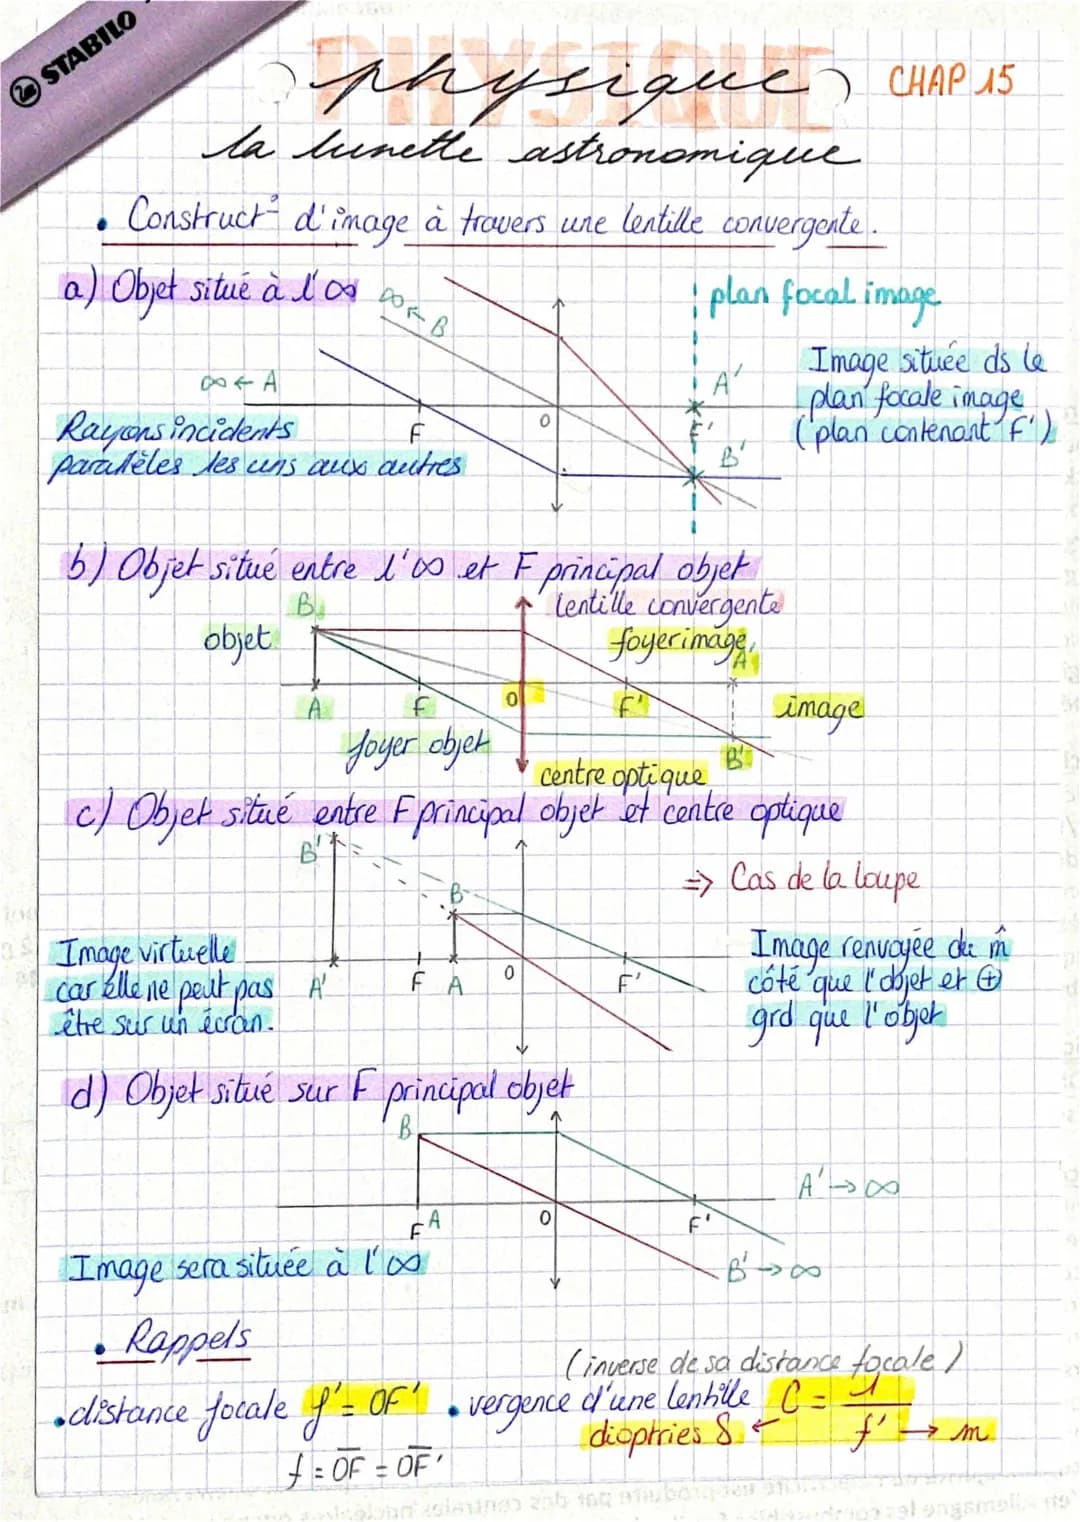 STABILO
PHYSIQUE
physique
CHAP 15
la lunette astronomique
• Construct° d'image à travers une lentille convergente.
a) Objet situé à l'∞
∞ ← B
plan focal image
∞ ← A
A'
Image située ds le
plan focale image
(plan contenant F')
F
O
F'
B'
Rayons incidents
parallèles les uns aux autres
b) Objet situé entre l'∞ et F principal objet
B
lentille convergente
objet
foyer image
A'
A
F
O
F'
image
foyer objet
B'
centre optique
c) Objet situé entre F principal objet et centre optique
B'
B
=> Cas de la loupe
Image virtuelle
car elle ne peut pas
être sur un écran.
A'
F
A
O
F'
Image renvoyée du m̂
côté que l'objet et ⊕
grd que l'objet
d) Objet situé sur F principal objet
B
A' → ∞
F
A
O
F'
B' → ∞
Image sera située à l'∞
• Rappels
(inverse de sa distance focale)
• distance focale f' = OF'
• vergence d'une lentille C = 1/f' → m
dioptries δ ←
f = O̅F̅ = O̅F̅'